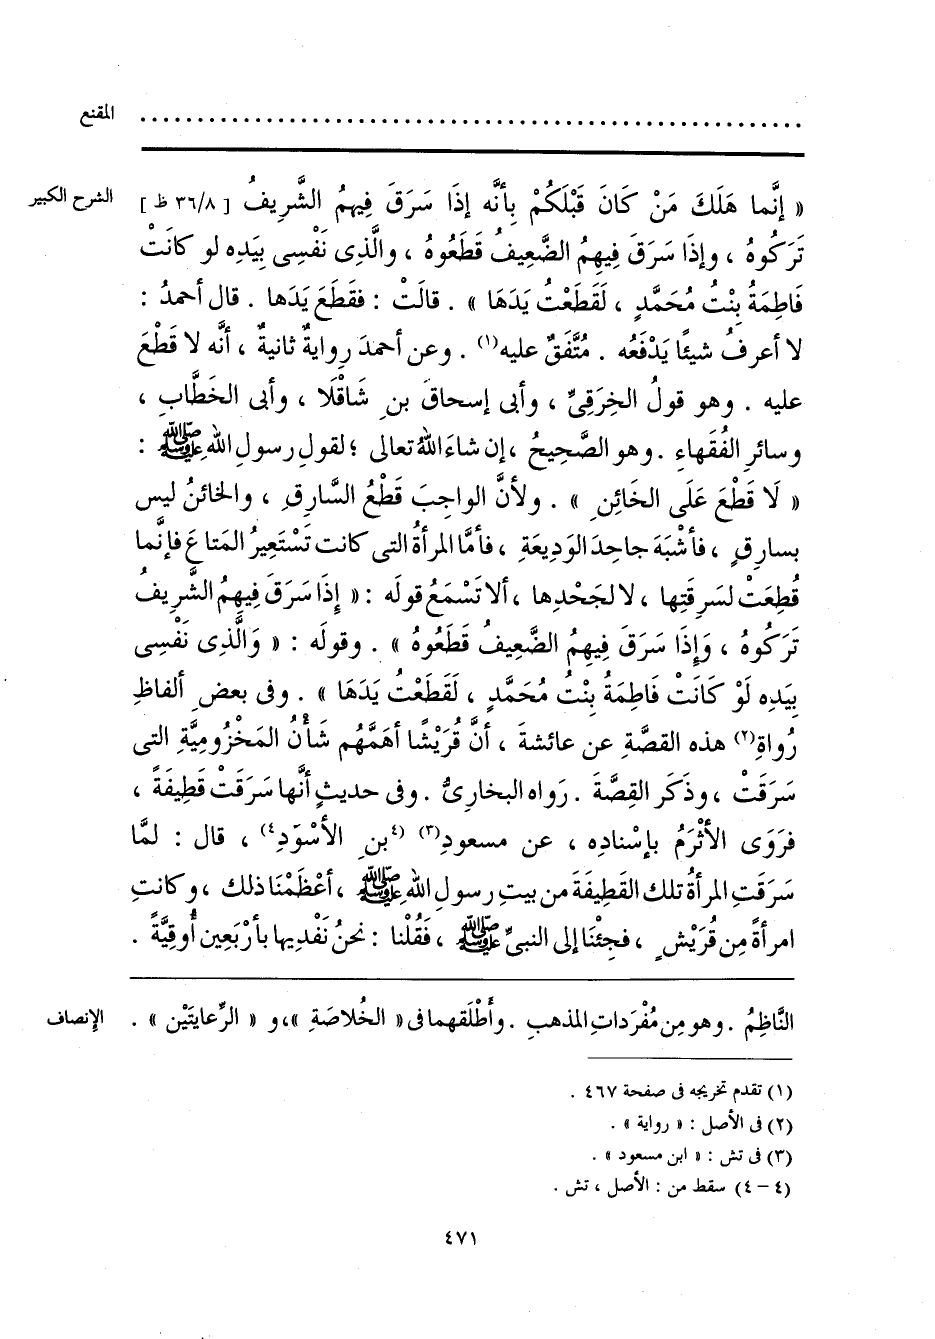 المقنع ................................................
الشرح الكبير
« إنَّما هَلَكَ مَنْ كَانَ قَبْلَكُمْ بِأنَّه إذَا سَرَقَ فِيهِمُ الشَّرِيفُ [ ٣٦/٨ ظ ]
تَرَكُوهُ ، وإذَا سَرَقَ فِيهِمُ الضَّعِيفُ قَطَعُوهُ ، والَّذِى نَفْسِى بِيَدِه لو كانَتْ
فَاطِمَةُ بِنْتُ مُحَمَّدٍ ، لَقَطَعْتُ يَدَهَا » . قالَتْ : فقَطَعَ يَدَها . قال أحمدُ :
لا أعرفُ شيئًا يَدْفَعُه . مُتَّفَقٌ عليه(١) . وعن أحمدَ روايةٌ ثانيةٌ ، أنَّه لا قَطْعَ
عليه . وهو قولُ الخِرَقِىِّ ، وأبى إسحاقَ بنِ شَاقْلَا ، وأبى الخَطَّابِ ،
وسائرِ الفُقَهاءِ . وهو الصَّحِيحُ ، إن شاءَ اللهُ تعالى ؛ لقولِ رسولِ اللهِ ﷺ :
« لَا قَطْعَ عَلَى الخَائِنِ » . ولأنَّ الواجِبَ قَطْعُ السَّارِقِ ، والخائنُ ليس
بسارِقٍ ، فأشْبَهَ جاحِدَ الوَدِيعَةِ ، فأمَّا المرأةُ التى كانت تَسْتَعِيرُ المَتاعَ فإنَّما
قُطِعَتْ لسَرِقَتِها ، لا لجَحْدِها ، ألا تَسْمَعُ قولَه : « إِذَا سَرَقَ فِيهِمُ الشَّرِيفُ
تَرَكُوهُ ، وَإِذَا سَرَقَ فِيهِمُ الضَّعِيفُ قَطَعُوهُ » . وقولَه : « وَالَّذِى نَفْسِى
بِيَدِه لَوْ كَانَتْ فَاطِمَةُ بِنْتُ مُحَمَّدٍ ، لَقَطَعْتُ يَدَهَا » . وفى بعضِ ألفاظِ
رُواةِ(٢) هذه القصَّةِ عن عائشةَ ، أنَّ قُرَيْشًا أهَمَّهُم شَأْنُ المَخْزُومِيَّةِ التى
سَرَقَتْ ، وذَكَر القِصَّةَ . رَواه البخارىُّ . وفى حديثٍ أنَّها سَرَقَتْ قَطِيفَةً ،
فرَوَى الأثْرَمُ بإسْنادِه ، عن مسعودِ(٣) (٤بنِ الأسْوَدِ٤) ، قال : لمَّا
سَرَقَتِ المرأةُ تلك القَطِيفَةَ من بيتِ رسولِ اللهِ ﷺ ، أعْظَمْنَا ذلك ، وكانتِ
امرأةً مِن قُرَيْشٍ ، فجِئْنَا إلى النبىِّ ﷺ ، فَقُلْنا : نحنُ نَفْدِيها بأرْبَعِين أُوقِيَّةً .
الإنصاف
النَّاظِمُ . وهو مِن مُفْرَداتِ المذهبِ . وأَطْلَقَهما فى « الخُلاصَةِ » ، و « الرِّعايتَيْن » .
(١) تقدم تخريجه فى صفحة ٤٦٧ .
(٢) فى الأصل : « رواية » .
(٣) فى تش : « ابن مسعود » .
(٤ – ٤) سقط من : الأصل ، تش .
٤٧١